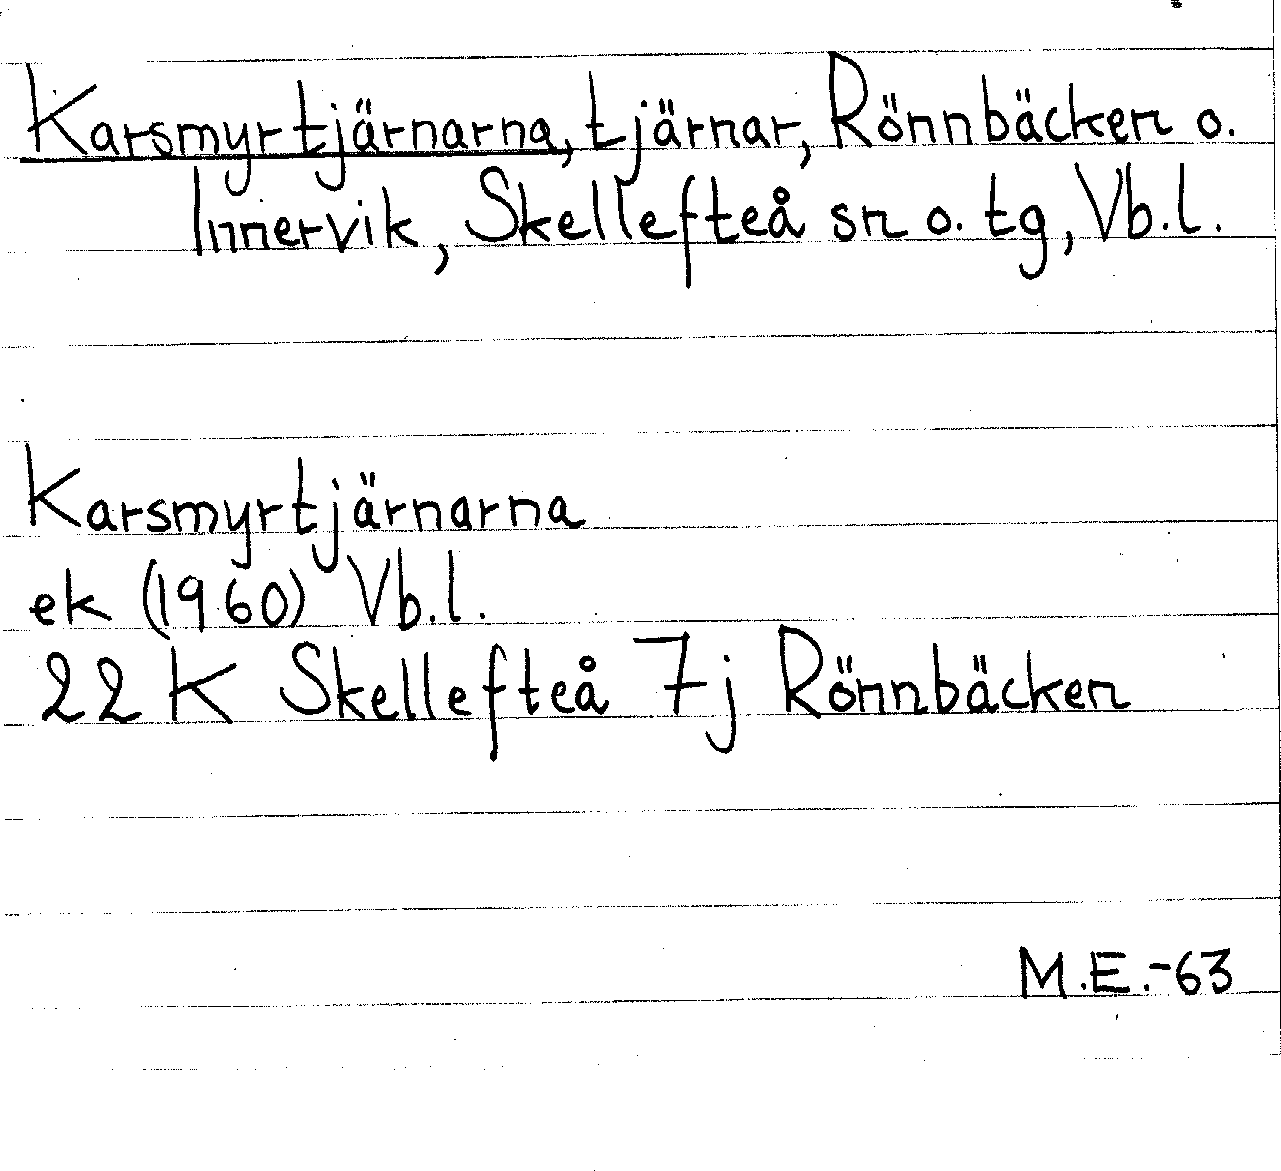 Karsmyrtjärnarna, tjärnar, Rönnbäcken o.
Innervik, Skellefteå sn o. tg, Vb.l.
Karsmyrtjärnarna
ek (1960) Vb.l.
22 K Skellefteå 7j Rönnbäcken
M.E.-63